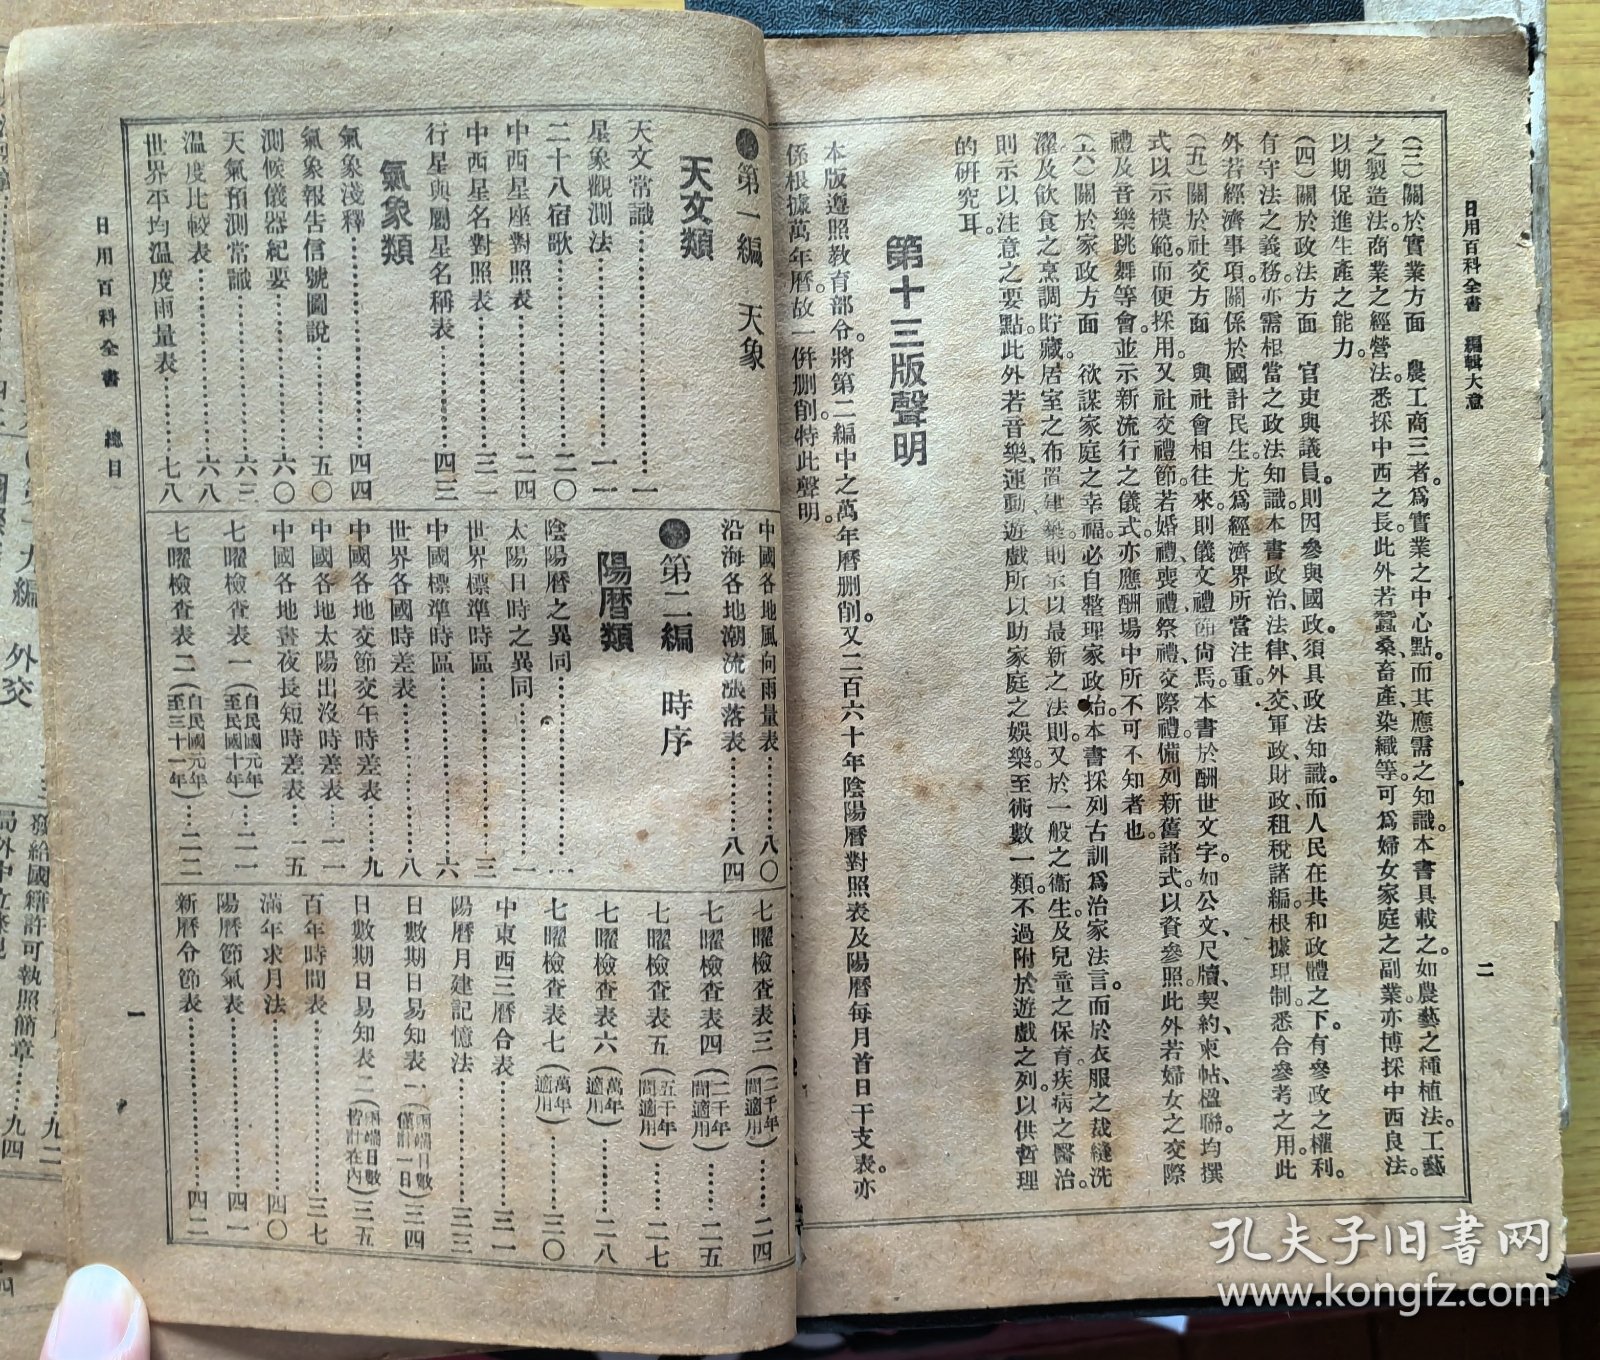 日用百科全書 編輯大意
二
(三)關於實業方面 農工商三者。爲實業之中心點。而其應需之知識。本書具載之。如農藝之種植法。工藝
之製造法。商業之經營法。悉採中西之長。此外若蠶桑、畜產、染織等。可爲婦女家庭之副業。亦博採中西良法。
以期促進生產之能力。
(四)關於政法方面 官吏與議員。則因參與國政。須具政法知識。而人民在共和政體之下。有參政之權利。
有守法之義務。亦需相當之政法知識。本書政治、法律、外交、軍政、財政、租稅諸編。根據現制。悉合參考之用。此
外若經濟事項。關係於國計民生。尤爲經濟界所當注重。
(五)關於社交方面 與社會相往來。則儀文禮節尚焉。本書於酬世文字。如公文、尺牘、契約、柬帖、楹聯、均撰
式以示模範。而便採用。又社交禮節。若婚禮、喪禮、祭禮、交際禮。備列新舊諸式。以資參照。此外若婦女之交際
禮及音樂跳舞等會。並示新流行之儀式。亦應酬場中所不可不知者也。
(六)關於家政方面 欲謀家庭之幸福。必自整理家政始。本書採列古訓爲治家法言。而於衣服之裁縫洗
濯及飲食之烹調貯藏居室之布置建築則示以最新之法則。又於一般之衞生。及兒童之保育。疾病之醫治。
則示以注意之要點。此外若音樂、運動、遊戲所以助家庭之娛樂。至術數一類。不過附於遊戲之列。以供哲理
的研究耳。
第十三版聲明
本版遵照教育部令。將第二編中之萬年曆删削。又二百六十年陰陽曆對照表及陽曆每月首日干支表。亦
係根據萬年曆。故一併删削。特此聲明。
第一編 天象
天文類
天文常識……一
星象觀測法……一一
二十八宿歌……二〇
中西星座對照表……二四
中西星名對照表……三一
行星與屬星名稱表……四三
氣象類
氣象淺釋……四四
氣象報告信號圖說……五〇
測候儀器紀要……六〇
天氣預測常識……六三
溫度比較表……六八
世界平均溫度雨量表……七八
中國各地風向雨量表……八〇
沿海各地潮流漲落表……八四
第二編 時序
陽曆類
陰陽曆之異同……一
太陽日時之異同……一
世界標準時區……三
中國標準時區……六
世界各國時差表……八
中國各地交節交午時差表……九
中國各地太陽出沒時差表……一一
中國各地晝夜長短時差表……一五
七曜檢查表一(自民國元年至民國十年)……二一
七曜檢查表二(自民國元年至三十一年)……二二
七曜檢查表三(二千年間適用)……二四
七曜檢查表四(二千年間適用)……二五
七曜檢查表五(五千年間適用)……二七
七曜檢查表六(萬年適用)……二八
七曜檢查表七(萬年適用)……三〇
中東西三曆合表……三一
陽曆月建記憶法……三三
日數期日易知表一(兩端日數僅計一日)三四
日數期日易知表二(兩端日數皆計在內)三五
百年時間表……三七
滿年求月法……四〇
陽曆節氣表……四一
新曆令節表……四二
日用百科全書 總目
一
外交
發給國籍許可執照簡章……九四
孔夫子旧书网
www.kongfz.com